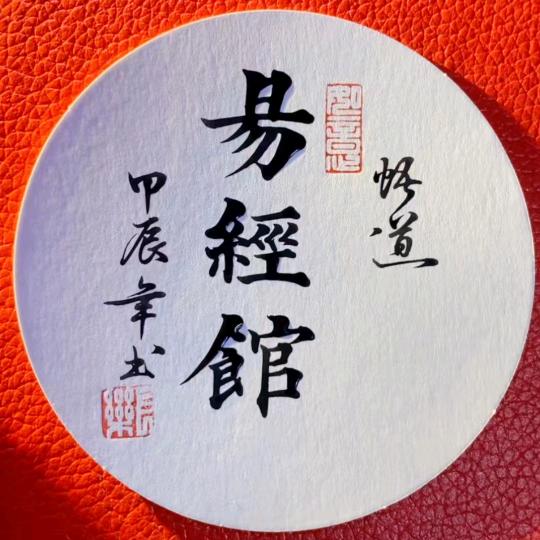 悟道
易經館
甲辰年书